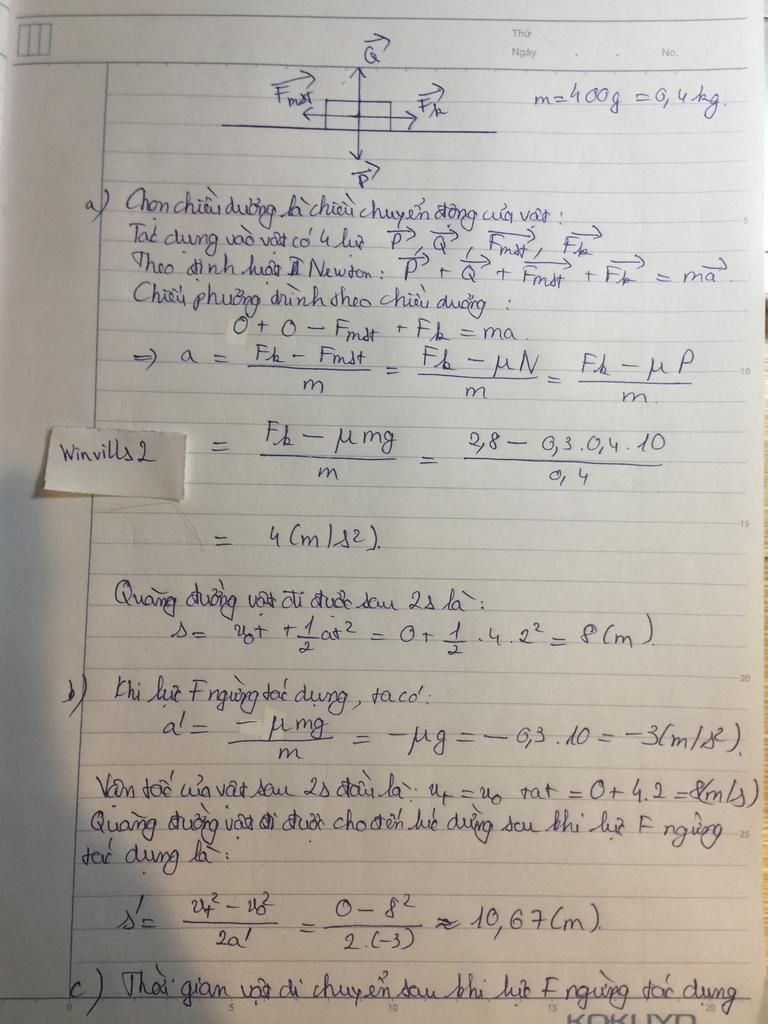 Thứ
Ngày . . No.
Q
Fmst Fk m = 400g = 0,4 kg.
P
a) Chọn chiều dương là chiều chuyển động của vật:
Tác dụng vào vật có 4 lực P, Q, Fmst, Fk
Theo định luật II Newton: P + Q + Fmst + Fk = ma
Chiếu phương trình theo chiều dương:
0 + 0 - Fmst + Fk = ma.
=> a = (Fk - Fmst)/m = (Fk - μN)/m = (Fk - μP)/m.
Winvills2
= (Fk - μmg)/m = (2,8 - 0,3.0,4.10)/0,4
= 4 (m/s²).
Quãng đường vật đi được sau 2s là:
s = v₀t + 1/2 at² = 0 + 1/2 . 4 . 2² = 8 (m).
b) Khi lực F ngừng tác dụng, ta có:
a' = -μmg/m = -μg = -0,3 . 10 = -3 (m/s²).
Vận tốc của vật sau 2s đầu là: vt = v₀ + at = 0 + 4.2 = 8(m/s)
Quãng đường vật đi được cho đến lúc dừng sau khi lực F ngừng
tác dụng là:
s' = (vt² - v₀²)/2a' = (0 - 8²)/2.(-3) ≈ 10,67 (m).
c) Thời gian vật di chuyển sau khi lực F ngừng tác dụng
0 5 10 15 20
5
10
15
20
25
KOKUYO